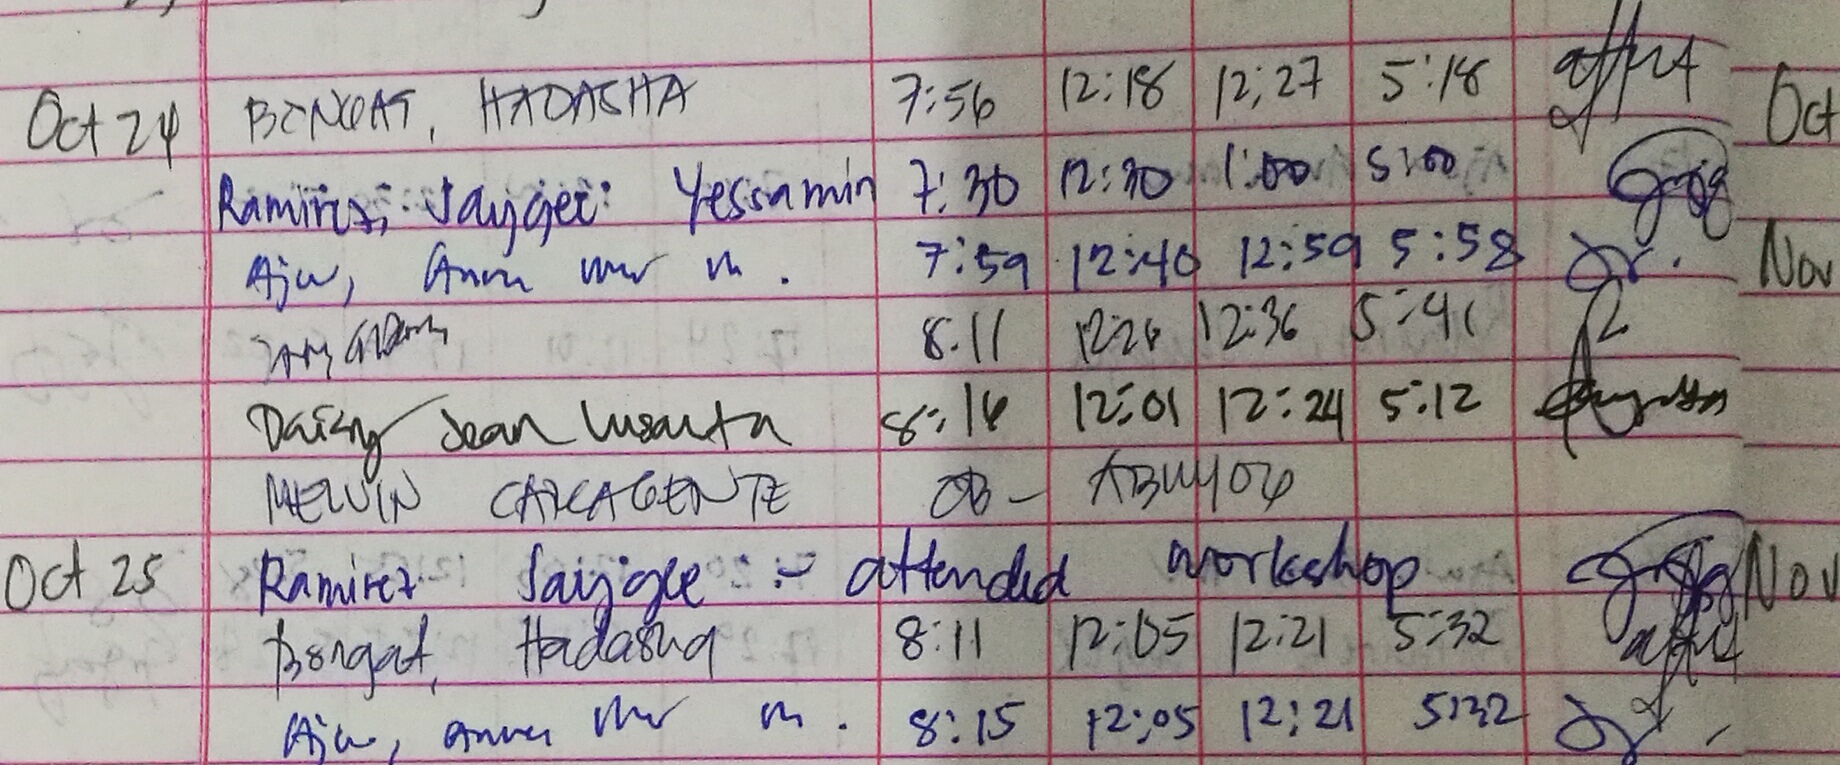 Oct 24 BENGAT, HADASHA 7:56 12:18 12:27 5:18 Oct
Ramirez, Jaijgee: Yessamin 7:30 12:30 1:00 5:00
Aju, m. 7:59 12:40 12:59 5:58 Nov
8:11 12:26 12:36 5:41
Daisy Jean Lusanta 8:16 12:01 12:24 5:12
MELVIN CARCAGENTE OB - ABUYOG
Oct 25 Ramirez Jaijgee :- attended workshop Nov
Bengat, Hadasha 8:11 12:05 12:21 5:32
Aju, m. 8:15 12:05 12:21 5:32